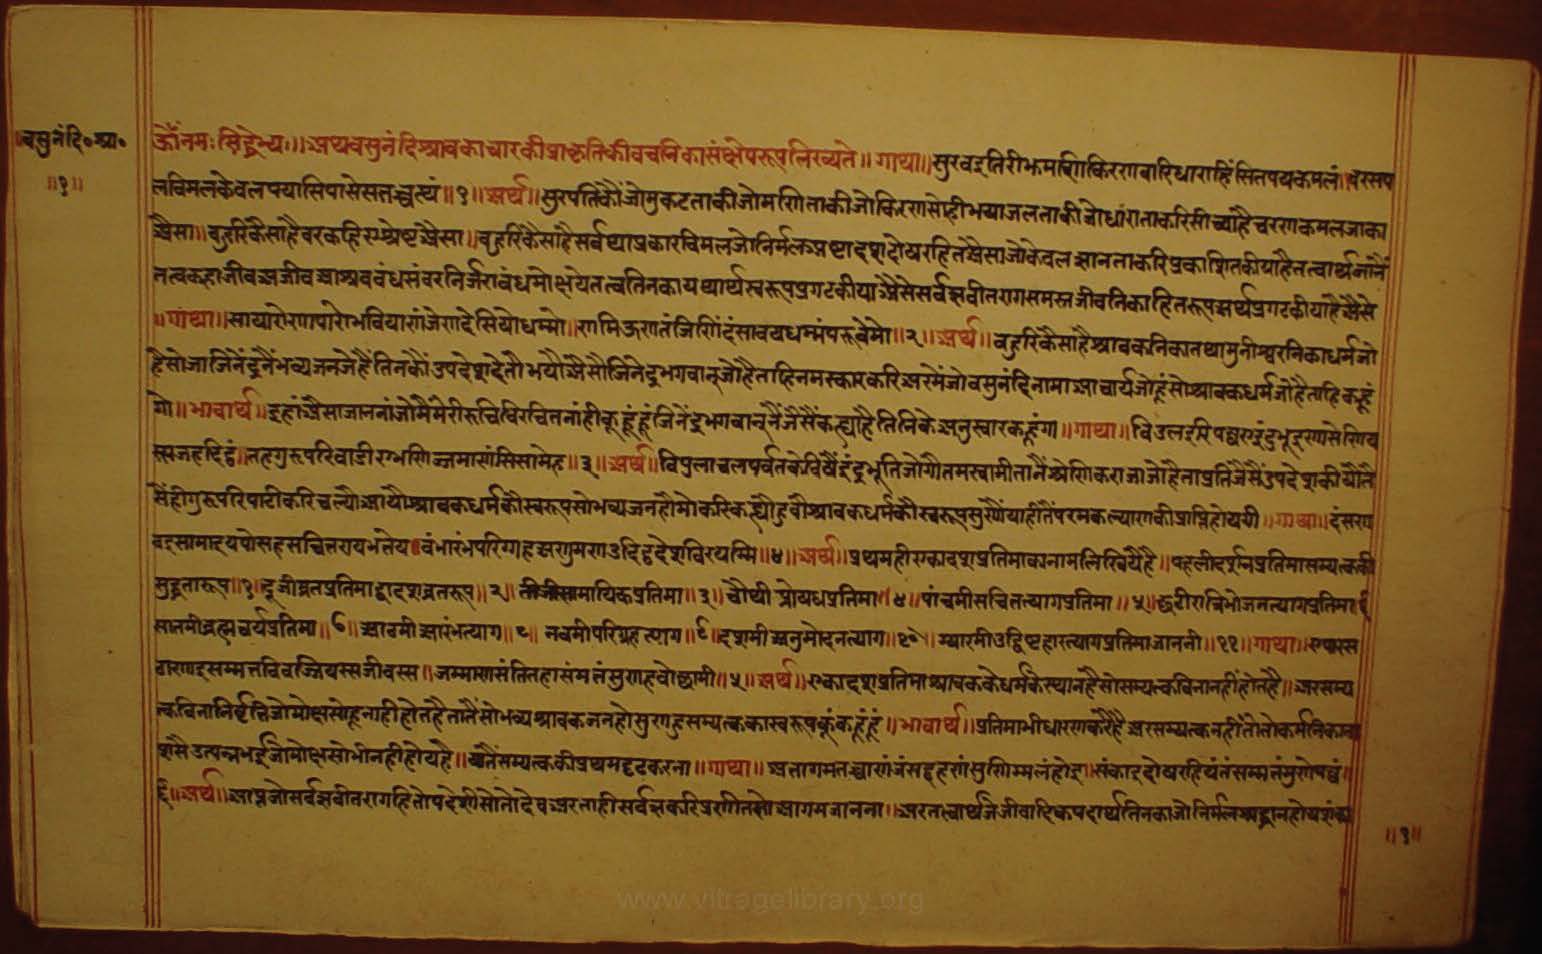 वसुनंदि॰श्रा॰
॥१॥
ॐ नमः सिद्धेभ्यः॥ अथ वसुनंदिश्रावकाचारकी प्राकृतिकी वचनिका संक्षेपरूप लिख्यते॥ गाथा॥ सुरवइतिरीडमणिकिरणवारिधाराहिंसितपयकमलं॥ वरसय
लविमलकेवलपयासियासेसतच्चत्थं॥१॥ अर्थ॥ सुरपतिकौंजोमुकटताकीजोमणिताकीजोकिरणसोहीभयाजलताकीजोधाराताकरिसीच्याहैचरणकमलजाका
अैसा॥ बहुरिकैसाहैवरकहिएश्रेष्टअैसा॥ बहुरिकैसाहैसर्वथाप्रकारविमलजोनिर्मलअष्टादशदोषरहितअैसाजोकेवलज्ञानताकरिप्रकाशितकीयाहैतत्वार्थजानैं
तत्वकहाजीवअजीवआश्रवबंधसंवरनिर्जराबंधमोक्षयेतत्वतिनकायथार्थस्वरूपप्रगटकीयाअैसेसर्वज्ञवीतरागसमस्तजीवनिकाहितरूपअर्थप्रगटकीयाहैअैसे
॥गाथा॥ सायारोणायारोभवियाणंजेणदेसियोधम्मो॥ णमिऊणतंजिणिंदंसावयधम्मंपरूवेमो॥२॥ अर्थ॥ बहुरिकैसाहैश्रावकनिकातथामुनीश्वरनिकाधर्मजो
हैसोजाजिनेंद्रनैंभव्यजनजेहैंतिनकौंउपदेशदेतौभयौअैसौजिनेंद्रभगवानजोहैताहिनमस्कारकरिअरमेंजोवसुनंदिनामाआचार्यजोहूंसोश्रावकधर्मजोहैताहिकहूं
गो॥ भावार्थ॥ इहांअैसाजाननांजोमैंमेरीरुचिविरचितनांहीकहूंहूंजिनेंद्रभगवाननैंजैसैंकह्याहैतिनिकेअनुस्वारकहूंगा॥ गाथा॥ विउलइरिपव्वएइंदभूइणासेणिय
स्सजहदिट्ठं॥ तहगुरुपरिवाडीएभणिज्जमाणंणिसामेह॥३॥ अर्थ॥ विपुलाचलपर्वतकेविषैंइंद्रभूतिजोगौतमस्वामीतानैंश्रेणिकराजाजोहैताप्रतिजैसैंउपदेशकीयौतै
सैंहीगुरुपरिपाटीकरिचल्यौआयौश्रावकधर्मकौस्वरूपसोभव्यजनहौमोकरिकह्यौहुवौश्रावकधर्मकौस्वरूपसुणौंयाहीतैंपरमकल्याणकीप्राप्तिहोयगी॥ गाथा॥ दंसणव
वइसामाइयपोसहसचित्तरायभत्तेय॥ बंभारंभपरिग्गहअणुमणउदिट्ठदेशविरयम्मि॥४॥ अर्थ॥ प्रथमहीएकादशप्रतिमाकानामलिखियैहै॥ पहलीदर्शनप्रतिमासम्यक्तकी
सुद्धतारूप॥१॥ दूजीव्रतप्रतिमाद्वादशव्रतरूप॥२॥ तीजीसामायिकप्रतिमा॥३॥ चौथीप्रोषधप्रतिमा॥४॥ पांचमीसचित्तत्यागप्रतिमा॥५॥ छठीरात्रिभोजनत्यागप्रतिमा॥६
सातमीब्रह्मचर्यप्रतिमा॥७॥ आठमीआरंभत्याग॥८॥ नवमीपरिग्रहत्याग॥९॥ दशमीअनुमोदनत्याग॥१०॥ ग्यारमीउद्दिष्टहारत्यागप्रतिमाजाननी॥११॥ गाथा॥ एयारस
ठाणाइसम्मत्तविवज्जियस्सजीवस्स॥ जम्माणसंतितहासंमत्तंसुणहवोछामी॥५॥ अर्थ॥ एकादशप्रतिमाश्रावककेधर्मकेस्थानहैसोसम्यत्कविनानहींहोतहै॥ अरसम्य
त्कविनानिर्वृत्तिजोमोक्षसोहूनाहीहोतहैतातैंसोभव्यश्रावकजनहोसुणहुसम्यत्ककास्वरूपकूंकहूंहूं॥ भावार्थ॥ प्रतिमाभीधारणकरैहैअरसम्यत्कनहींतोतोकर्मनिका
शसैउत्पन्नभईजोमोक्षसोभीनहीहोयहै॥ यातैंसम्यत्ककीप्रथमदृढकरना॥ गाथा॥ अत्तागमतच्चाणंजंसद्दहणंसुणिम्मलंहोइ॥ संकाइदोसरहियंतंसम्मत्तंमुणेयव्वं॥
६॥ अर्थ॥ आप्तजोसर्वज्ञवीतरागहितोपदेशीसोतोदेवअरताहीसर्वज्ञकरिप्रणीतसोआगमजानना॥ अरतत्वार्थजेजीवादिकपदार्थतिनकाजोनिर्मलश्रद्धानहोयशंका
॥१॥
www.vitragelibrary.org